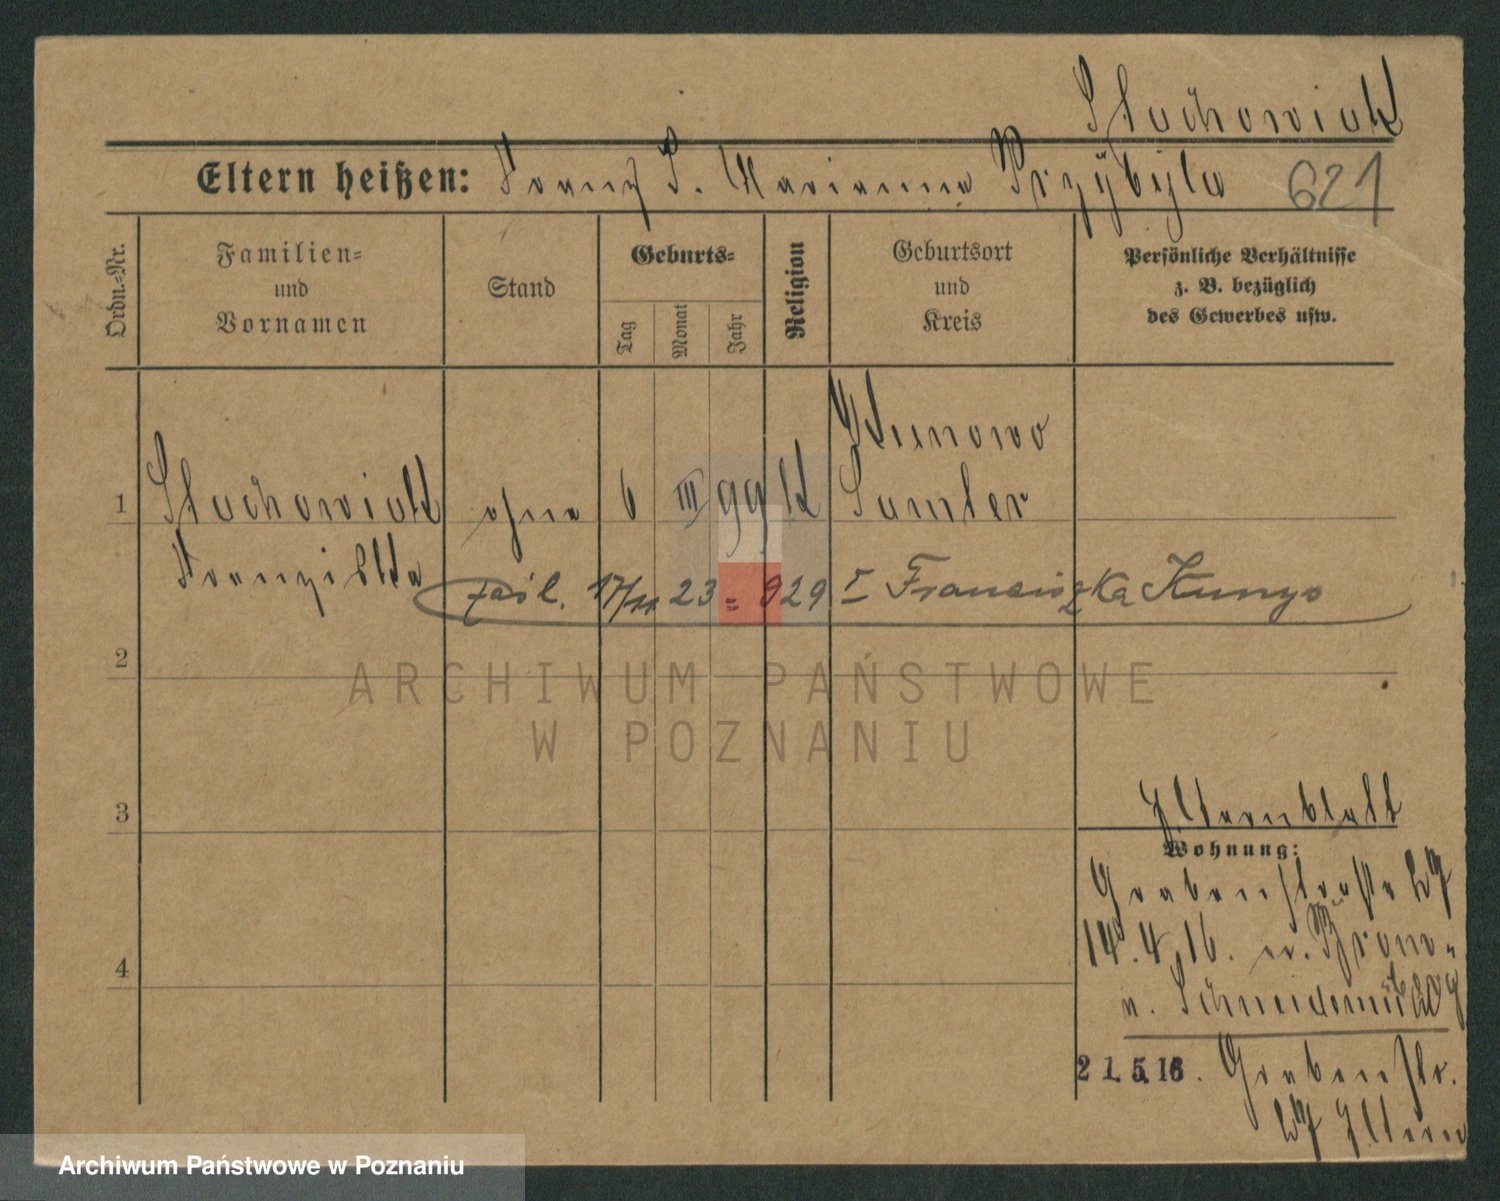 Stachowiak
Eltern heißen: Franz S. Marianna Przybyla 621
Ordn.-Nr.
Familien-
und
Vornamen
Stand
Geburts-
Tag
Monat
Jahr
Religion
Geburtsort
und
Kreis
Persönliche Verhältnisse
z. B. bezüglich
des Gewerbes usw.
1 Stachowiak ohne 6 III 99 K
Franziska
Samter
zaśl. 17/11 23 = 929 Franciszka
2
3
4
Elternblatt
Wohnung:
Grabenstraße
14.4.16.
n. Schneidemühl
21.5.16. Grabenstr.
Eltern
ARCHIWUM PAŃSTWOWE
W POZNANIU
Archiwum Państwowe w Poznaniu